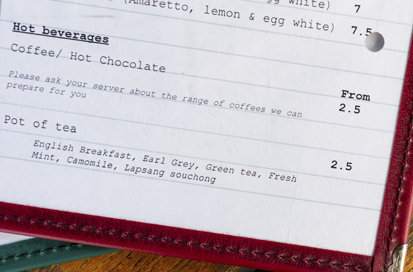 gg white) 7
(Amaretto, lemon & egg white) 7.5
Hot beverages
Coffee/ Hot Chocolate From
Please ask your server about the range of coffees we can 2.5
prepare for you
Pot of tea 2.5
English Breakfast, Earl Grey, Green tea, Fresh
Mint, Camomile, Lapsang souchong